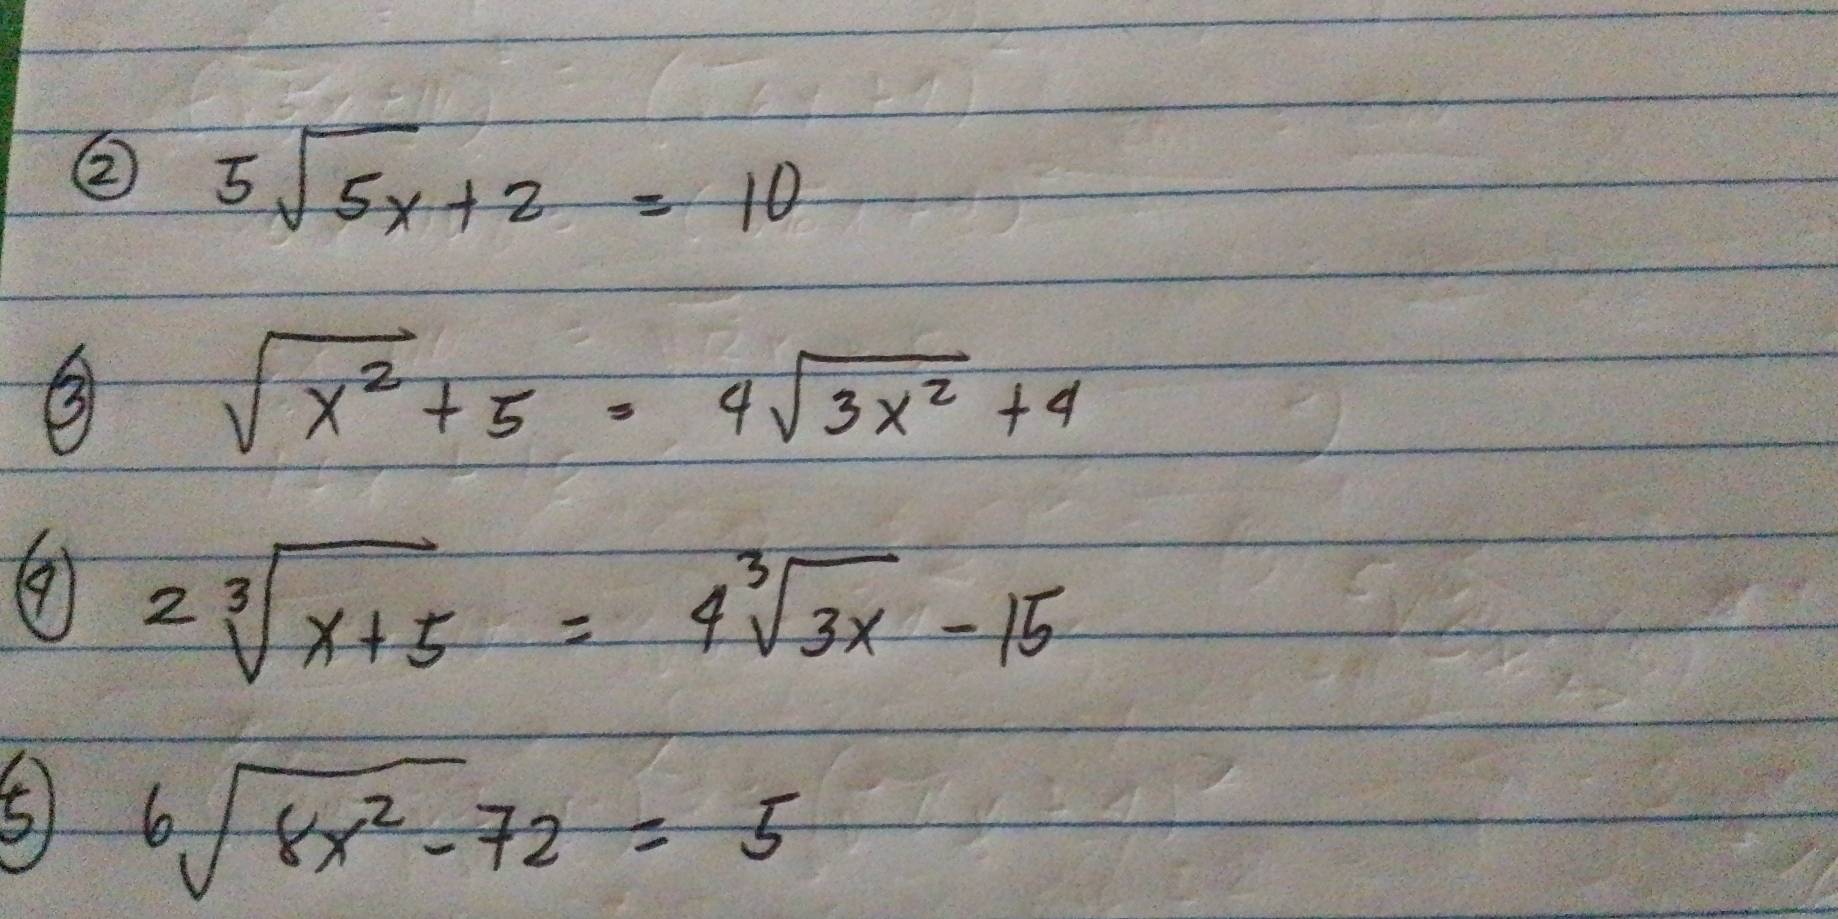 ② 5√5x + 2 = 10
③ √x² + 5 = 4√3x² + 4
④ 2 ³√x + 5 = 4 ³√3x - 15
⑤ 6√8x² - 72 = 5